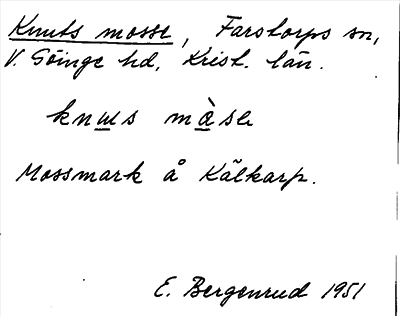 Knuts mosse, Farstorps sn,
V. Göinge hd, Krist. län.
knus màse
Mossmark å Kälkarp.
E. Bergenrud 1951